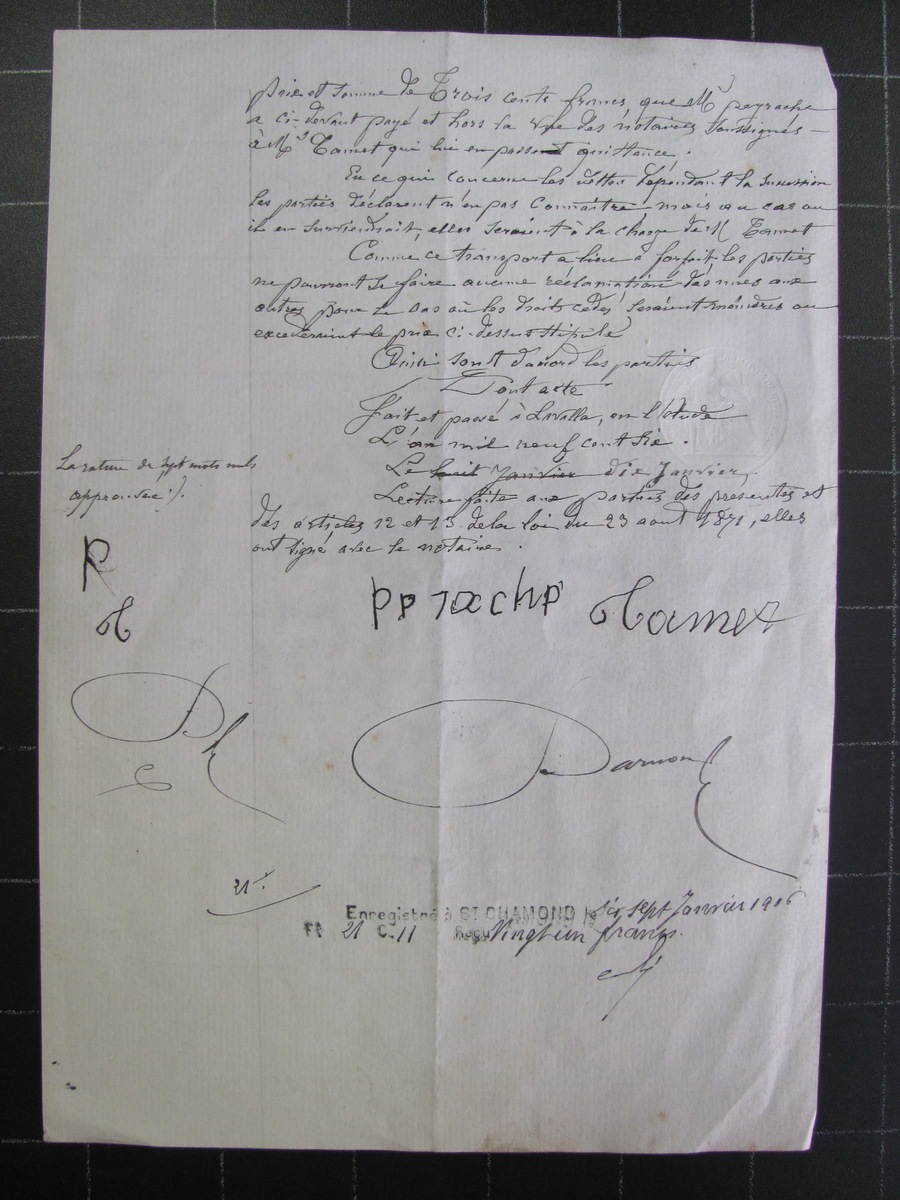 prix et somme de Trois cents francs, que Mr peyrache
a ci-devant payé et hors la vue des notaires soussignés –
à Mr Tamet qui lui en passent quittance.
En ce qui concerne les dettes dépendant la succession
les parties déclarent n'en pas connaître mais au cas ou
il en surviendrait, elles seraient à la charge de M Tamet
Comme ce transport a lieu à forfait les parties
ne pourront se faire aucune réclamation des unes aux
autres pour le cas où les droits cédés seraient moindres ou
excederaient le prix ci-dessus stipulé
Ainsi sont d'accord les parties
Dont acte
Fait et passé à Lavalla, en l'étude
L'an mil neuf cent six.
Le huit Janvier dix Janvier,
La rature de sept mots nuls
approuvée ./.
Lecture faite aux parties des presentes et
des articles 12 et 13 de la loi du 23 aout 1871, elles
ont signé avec le notaire.
P
T
pprachp Tamet
D
Darmon
21 f.
Enregistré à ST CHAMOND le dix sept Janvier 1906
F° 21 C. 11 Reçu Vingt un francs.